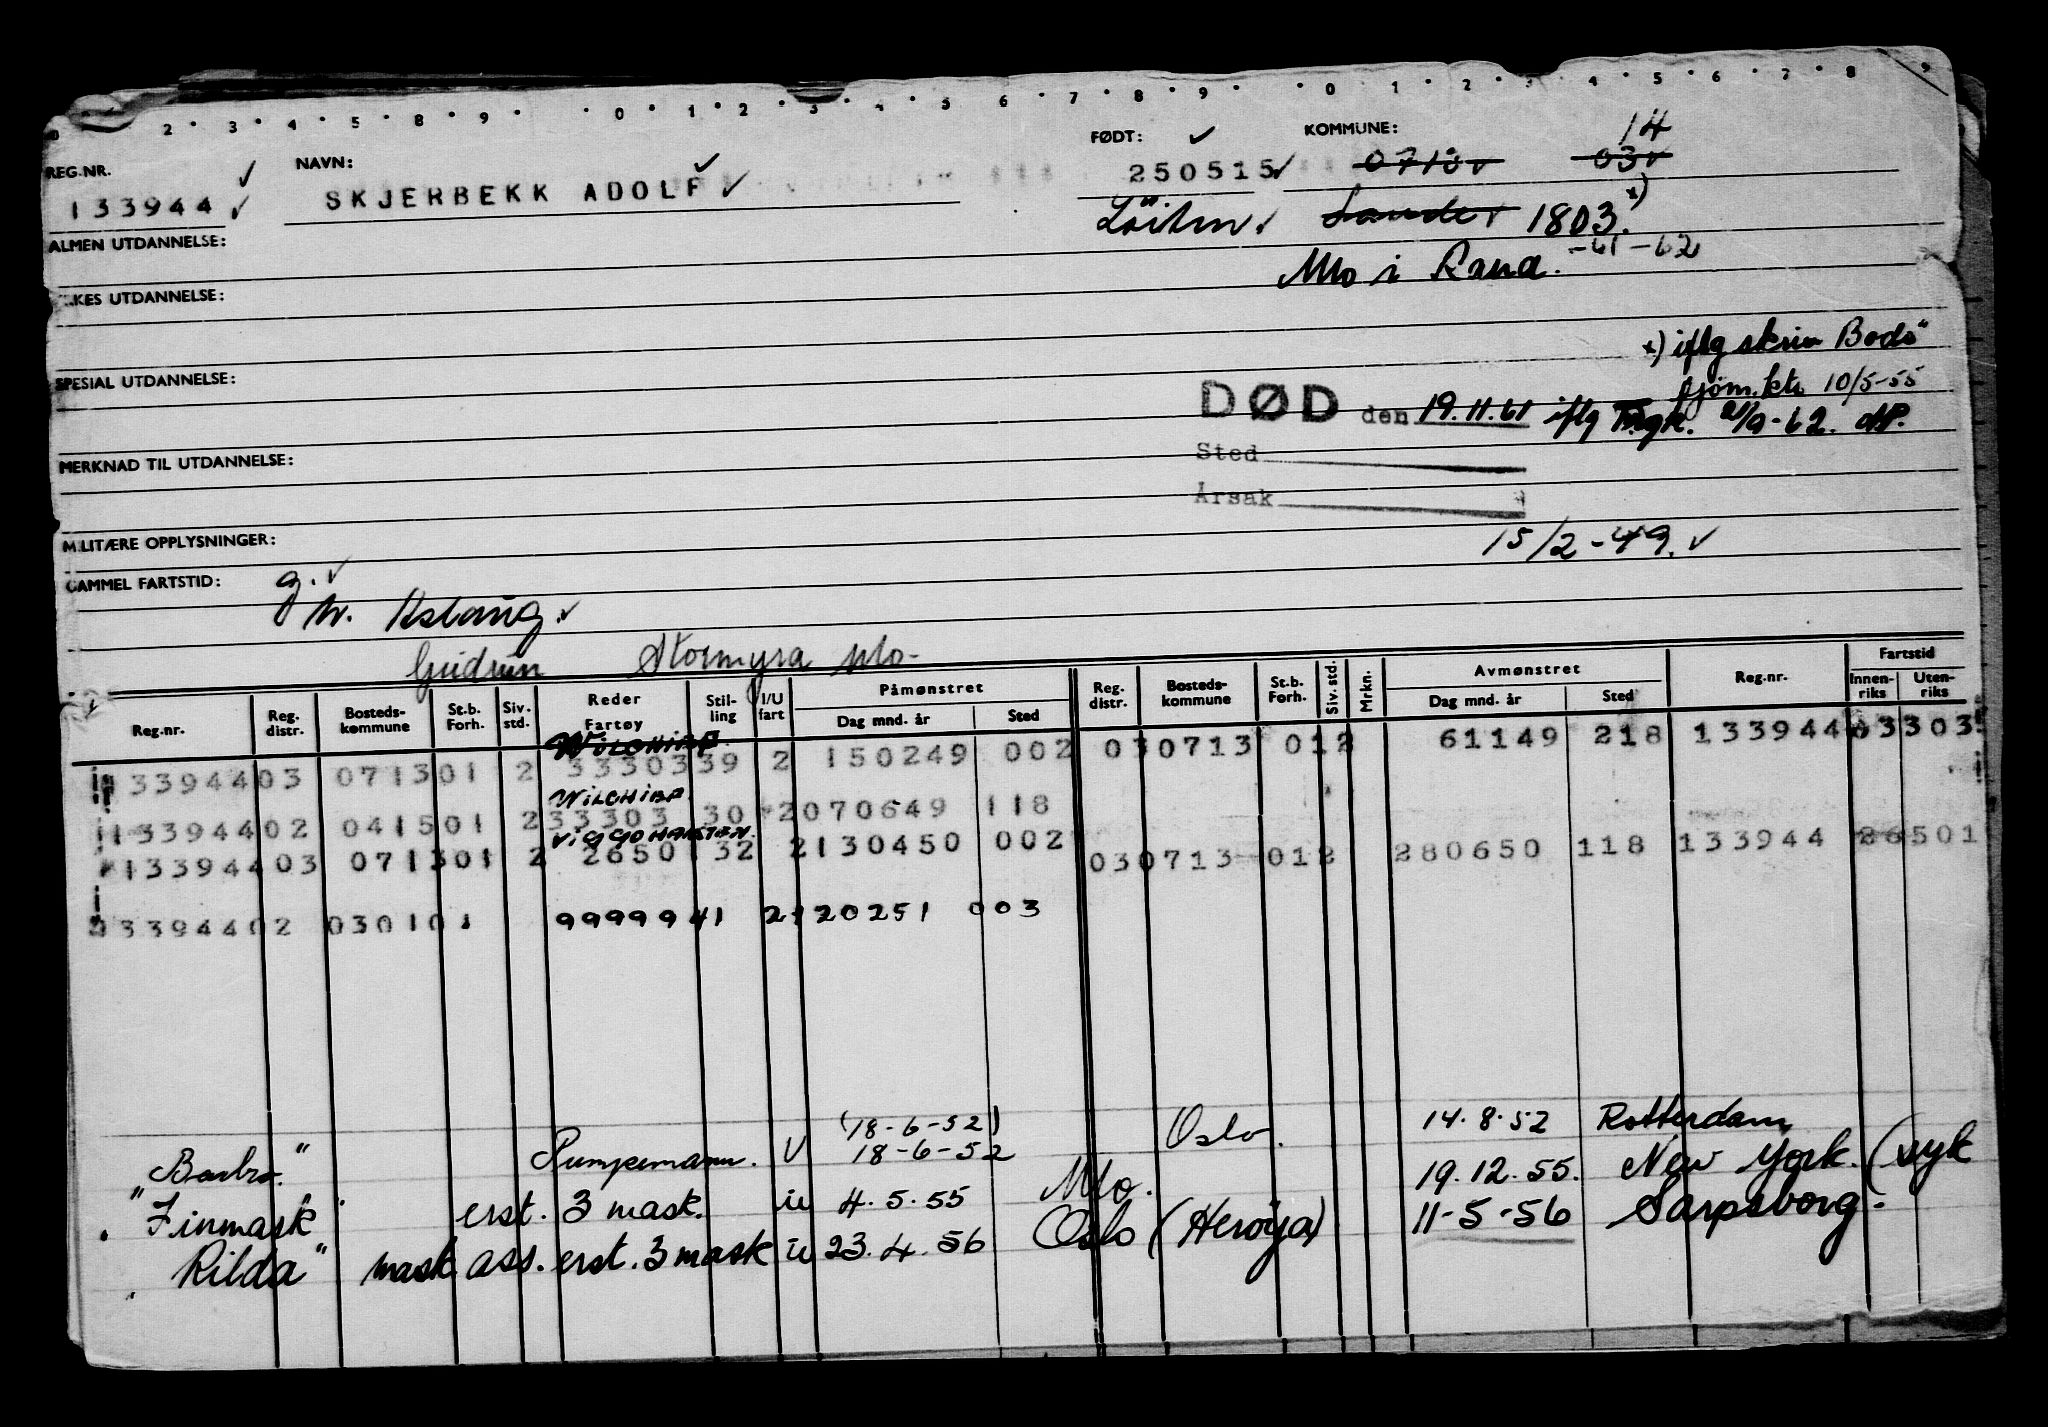 2 3 4 5 8 9 0 1 2 3 4 5 6 7 8 9 0 1 2 3 4 5 6 7 8 9
REG.NR. ✓ NAVN: ✓ FØDT: ✓ KOMMUNE: 14
133944 ✓ SKJERBEKK ADOLF ✓ 250515 ✓ 0713 ✓ 03 ✓
ALMEN UTDANNELSE: Löiten. Sande ✓ 1803. x)
Mo i Rana. -61-62
RKES UTDANNELSE:
x) iflg skriv Bodö
SPESIAL UTDANNELSE: sjöm.ktr 10/5-55
DØD den 19.11.61 iflg Trgk. 21/9-62.
Sted
MERKNAD TIL UTDANNELSE:
Årsak
MILITÆRE OPPLYSNINGER: 15/2-49. ✓
GAMMEL FARTSTID: g. ✓
Gudrun Stormyra Mo-
Reg.nr. Reg. distr. Bosteds-kommune St.b. Forh. Siv. std. Reder Fartøy Stil-ling I/U fart Påmønstret Dag mnd. år Sted Reg. distr. Bosteds-kommune St.b. Forh. Siv. std. Mrkn. Avmønstret Dag mnd. år Sted Reg.nr. Fartstid Innen-riks Uten-riks
WILCHIEF
33944 03 0713 01 2 33303 39 2 150249 002 03 0713 01 2 61149 218 133944 33303
WILCHIEF
133944 02 0415 01 2 33303 30 2 070649 118
VIGGO HANSTEEN
133944 03 0713 01 2 26501 32 2 130450 002 03 0713 01 2 280650 118 133944 26501
33944 02 0301 01 99999 41 2 120251 003
(18-6-52)
"Barbro" Pumpemann. U 18-6-52 Oslo. 14.8.52 Rotterdam
"Finmark" erst. 3 mask. u 4.5.55 Mo. 19.12.55. New York. (syk
"Rilda" mask ass. erst. 3 mask u 23.4.56 Oslo (Herøya) 11-5-56 Sarpsborg.